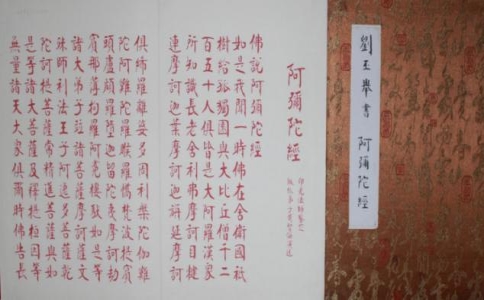 劉王舉書 阿彌陀經
阿彌陀經
佛說阿彌陀經
如是我聞一時佛在舍衛國祇
樹給孤獨園與大比丘僧千二
百五十人俱皆是大阿羅漢衆
所知識長老舍利弗摩訶目犍
連摩訶迦葉摩訶迦旃延摩訶
俱絺羅離婆多周利槃陀伽難
陀阿難陀羅睺羅憍梵波提賓
頭盧頗羅墮迦留陀夷摩訶劫
賓那薄拘羅阿㝹樓馱如是等
諸大弟子并諸菩薩摩訶薩文
殊師利法王子阿逸多菩薩乾
陀訶提菩薩常精進菩薩與如
是等諸大菩薩及釋提桓因等
無量諸天大衆俱爾時佛告長